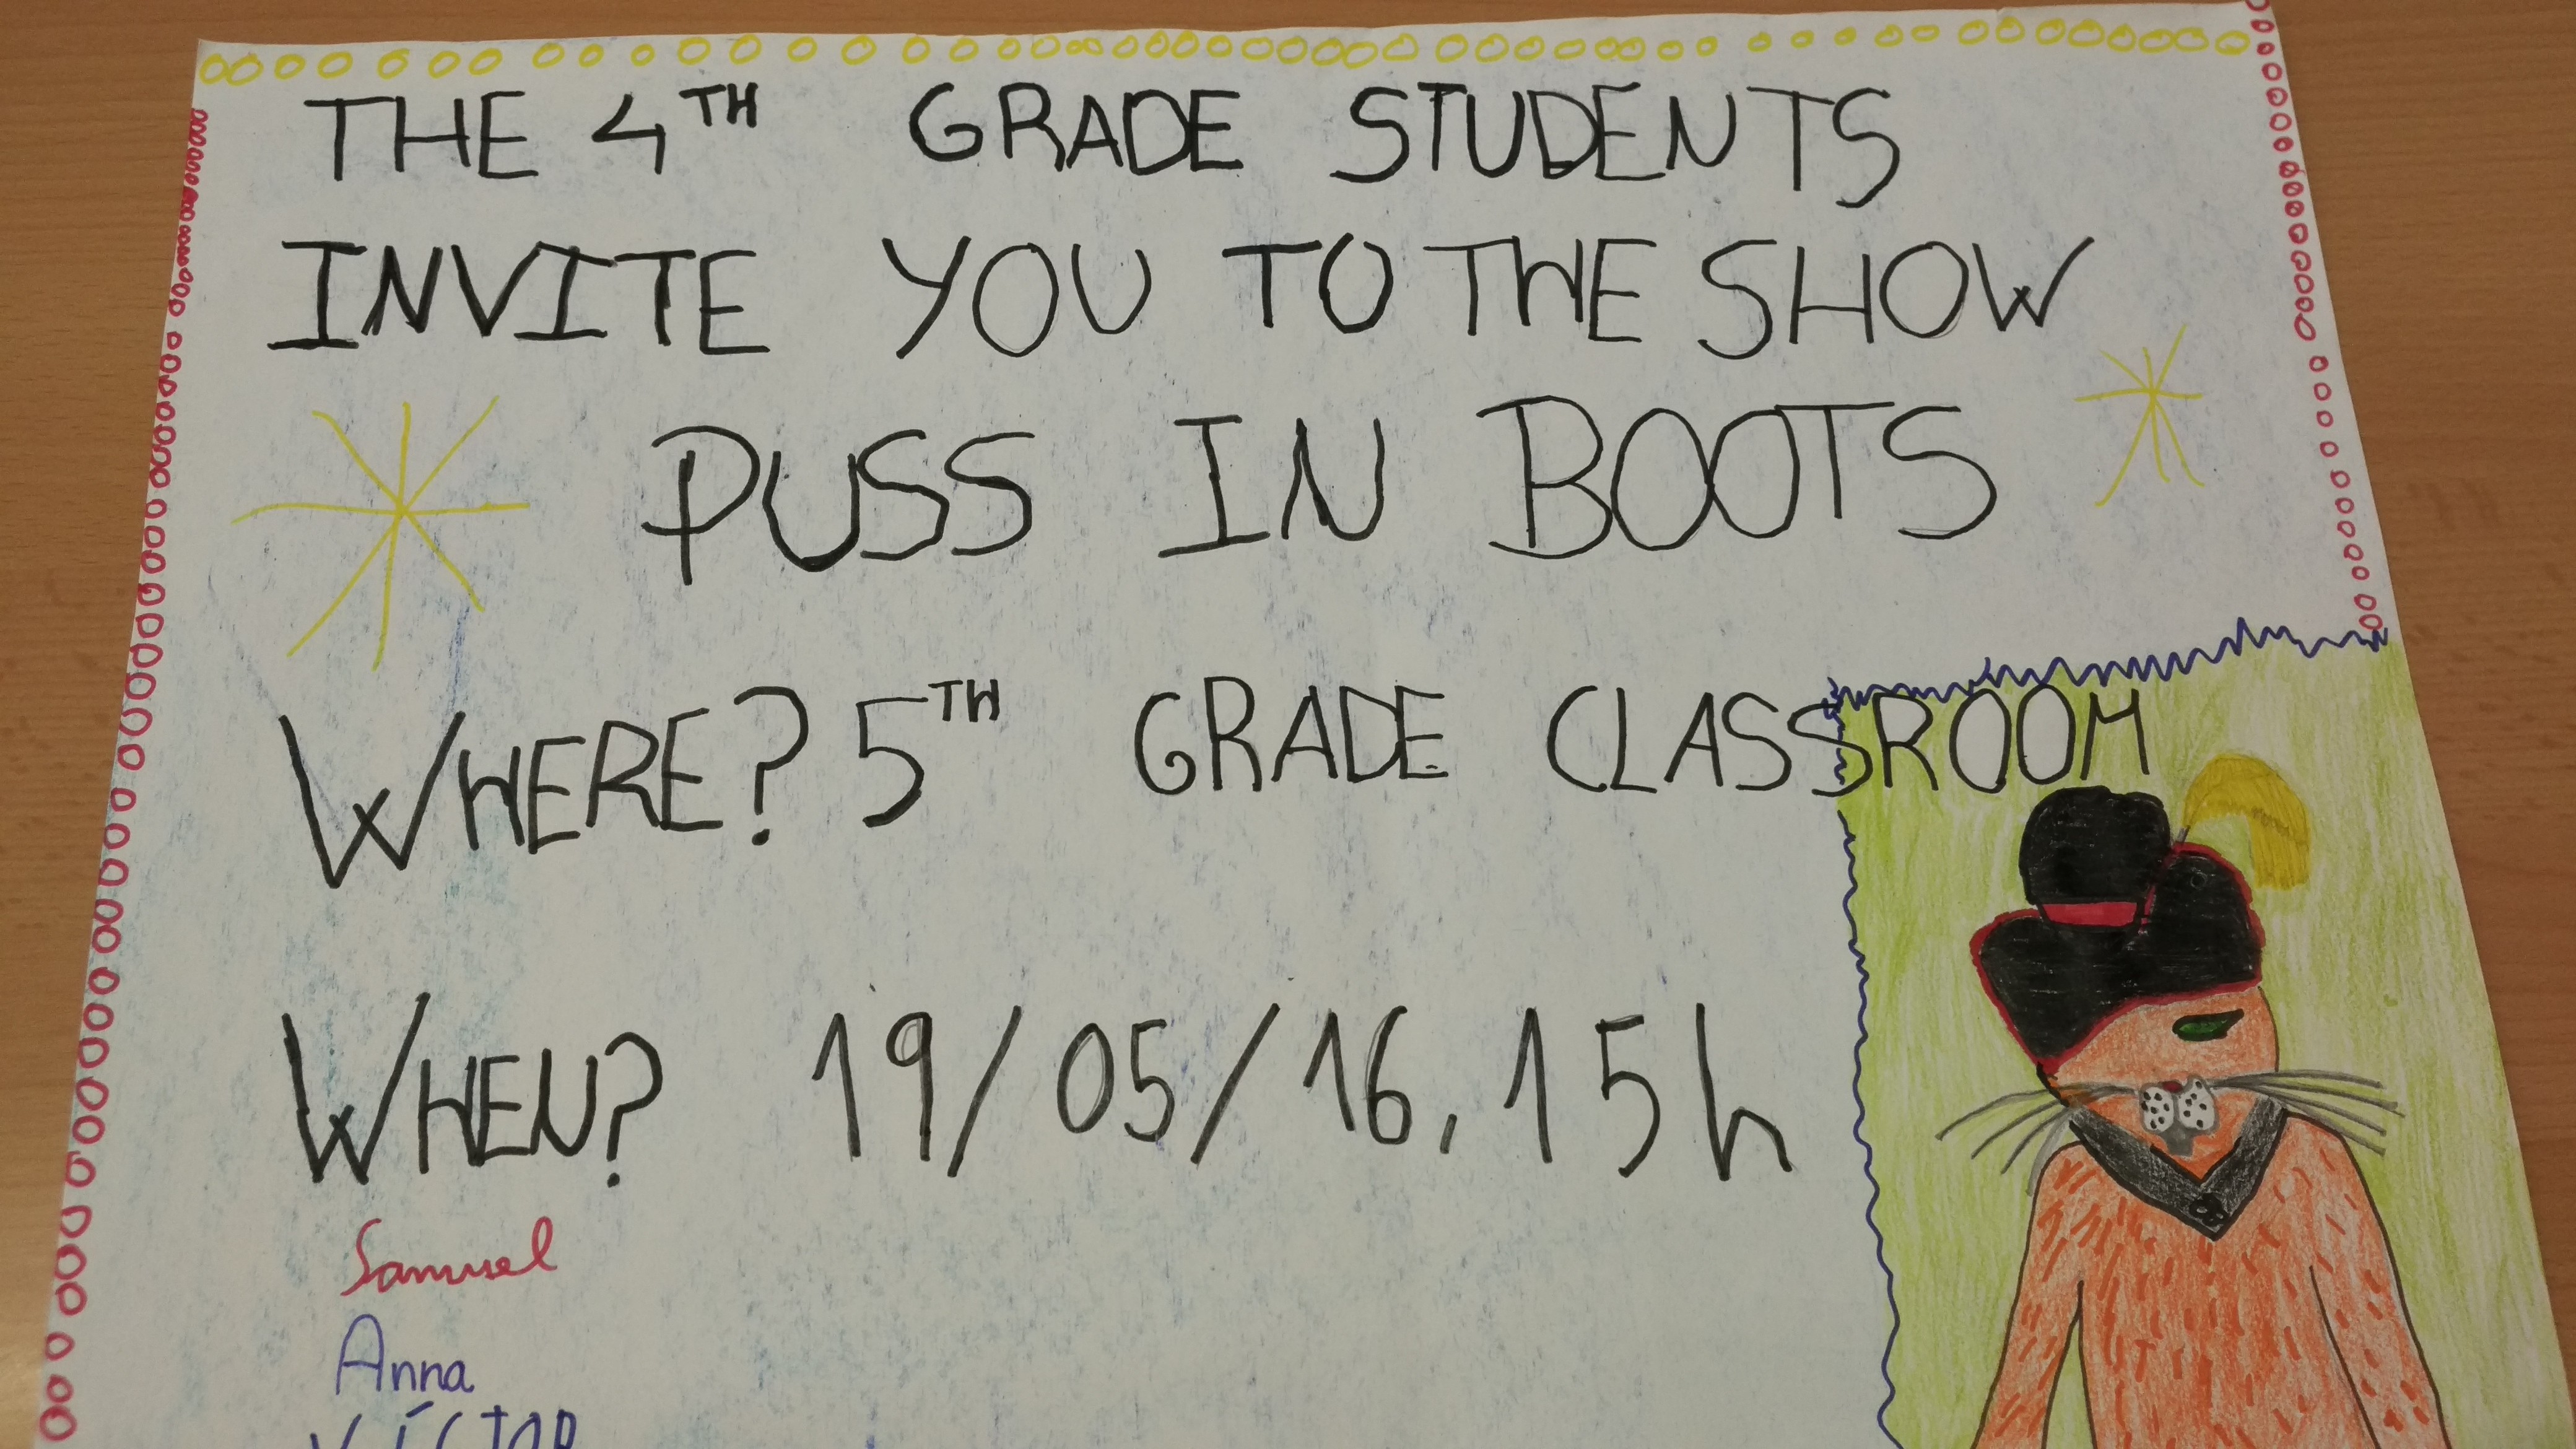 THE 4TH GRADE STUDENTS
INVITE YOU TO THE SHOW
PUSS IN BOOTS
WHERE? 5TH GRADE CLASSROOM
WHEN? 19/05/16, 15h
Samuel
Anna
VÍCTOR